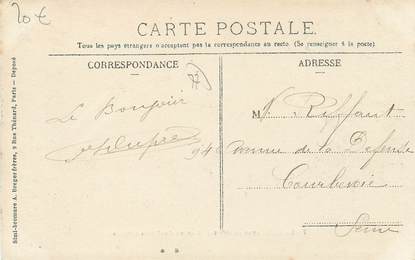 20€
CARTE POSTALE.
Tous les pays étrangers n'acceptent pas la correspondance au recto. (Se renseigner à la poste).
CORRESPONDANCE
ADRESSE
77
Le Bonjour
94
M. Riffaut
Avenue de la Défense
Courbevoie
Seine
Simi-bromure A. Breger frères, 9 Rue Thénard, Paris — Déposé